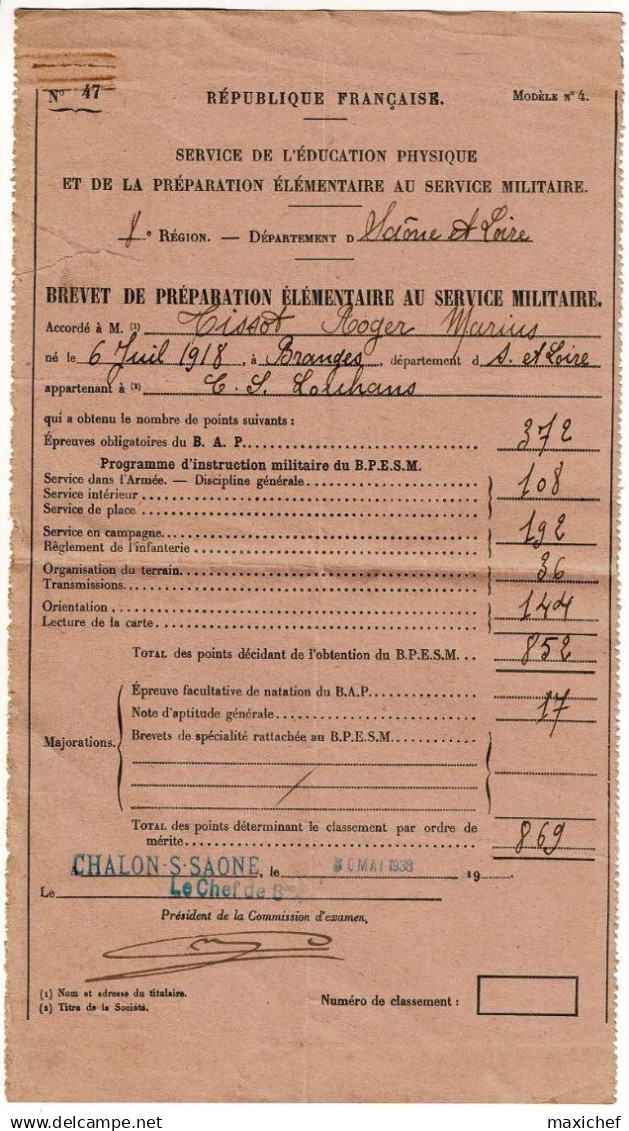 N° 47
RÉPUBLIQUE FRANÇAISE.
MODÈLE N° 4.
SERVICE DE L'ÉDUCATION PHYSIQUE
ET DE LA PRÉPARATION ÉLÉMENTAIRE AU SERVICE MILITAIRE.
8e RÉGION. — DÉPARTEMENT D Saône et Loire
BREVET DE PRÉPARATION ÉLÉMENTAIRE AU SERVICE MILITAIRE.
Accordé à M. (1) Tissot Roger Marius
né le 6 Juil 1918, à Branges, département d S. et Loire
appartenant à (2) C. S. Louhans
qui a obtenu le nombre de points suivants :
Épreuves obligatoires du B. A. P. 372
Programme d'instruction militaire du B.P.E.S.M.
Service dans l'Armée. — Discipline générale
Service intérieur 108
Service de place
Service en campagne 192
Règlement de l'infanterie
Organisation du terrain 36
Transmissions
Orientation 144
Lecture de la carte
TOTAL des points décidant de l'obtention du B.P.E.S.M. 852
Épreuve facultative de natation du B.A.P.
Note d'aptitude générale 17
Majorations. Brevets de spécialité rattachée au B.P.E.S.M.
TOTAL des points déterminant le classement par ordre de
mérite 869
A CHALON-S-SAONE, le 30 MAI 1938 19
Le Le Chef de Bon
Président de la Commission d'examen,
(1) Nom et adresse du titulaire.
(2) Titre de la Société.
Numéro de classement :
maxichef